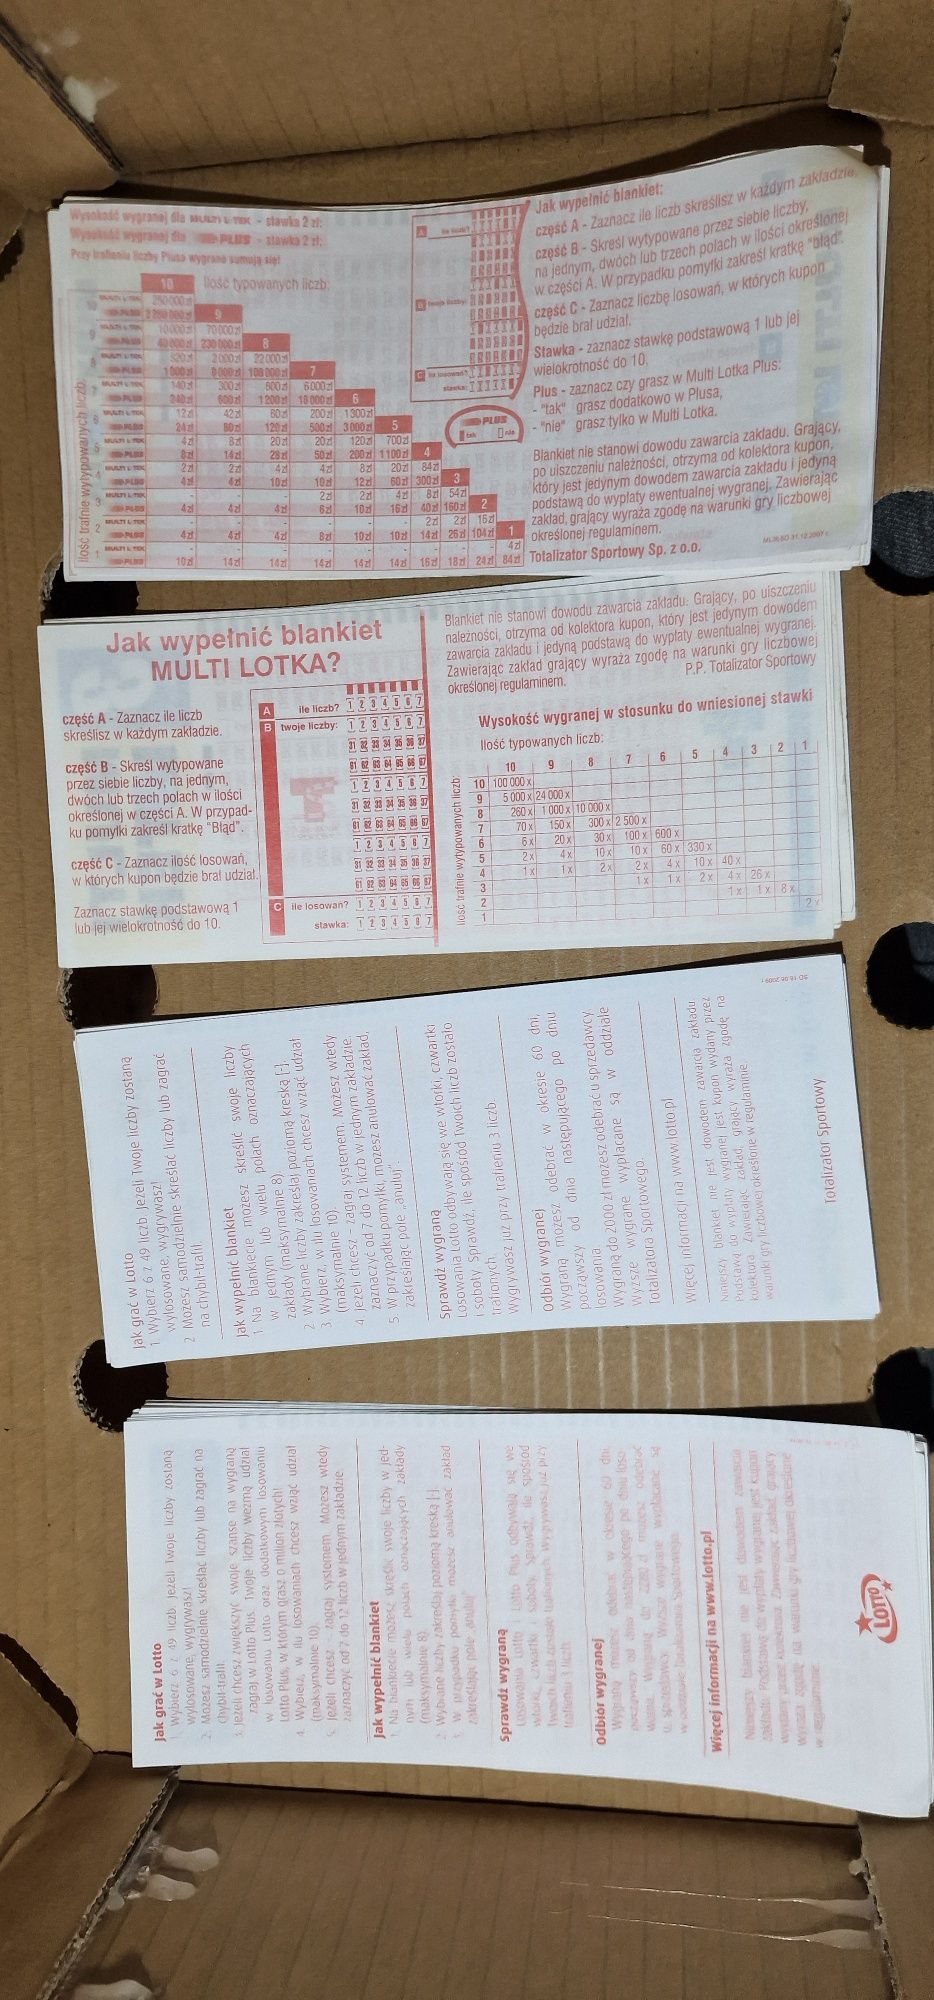 Wysokość wygranej dla MULTI LOTEK - stawka 2 zł:
Wysokość wygranej dla PLUS - stawka 2 zł:
Przy trafieniu liczby Plusa wygrane sumują się!
Ilość typowanych liczb:
ilość trafnie wytypowanych liczb:
10
250 000 zł
9
10 000 zł 70 000 zł
230 000 zł 8
520 zł 2 000 zł 22 000 zł
7
140 zł 300 zł 600 zł 6 000 zł
240 zł 600 zł 1 200 zł 18 000 zł 6
12 zł 42 zł 60 zł 200 zł 1 300 zł
24 zł 80 zł 120 zł 500 zł 3 000 zł 5
4 zł 8 zł 20 zł 20 zł 120 zł 700 zł
8 zł 14 zł 28 zł 50 zł 200 zł 1 100 zł 4
2 zł 2 zł 4 zł 4 zł 8 zł 20 zł 84 zł
4 zł 4 zł 10 zł 10 zł 12 zł 60 zł 300 zł 3
- - - 2 zł 2 zł 4 zł 8 zł 54 zł
4 zł 4 zł 4 zł 6 zł 10 zł 16 zł 40 zł 160 zł 2
- - - - - - 2 zł 2 zł 16 zł
4 zł 4 zł 4 zł 8 zł 10 zł 10 zł 14 zł 26 zł 104 zł 1
- - - - - - - - - 4 zł
10 zł 14 zł 14 zł 14 zł 14 zł 14 zł 16 zł 18 zł 24 zł 84 zł
A ile liczb?
B twoje liczby:
C ile losowań?
stawka:
PLUS
tak nie
Jak wypełnić blankiet:
część A - Zaznacz ile liczb skreślisz w każdym zakładzie.
część B - Skreśl wytypowane przez siebie liczby,
na jednym, dwóch lub trzech polach w ilości określonej
w części A. W przypadku pomyłki zakreśl kratkę "błąd".
część C - Zaznacz liczbę losowań, w których kupon
będzie brał udział.
Stawka - zaznacz stawkę podstawową 1 lub jej
wielokrotność do 10.
Plus - zaznacz czy grasz w Multi Lotka Plus:
- "tak" grasz dodatkowo w Plusa,
- "nie" grasz tylko w Multi Lotka.
Blankiet nie stanowi dowodu zawarcia zakładu. Grający,
po uiszczeniu należności, otrzyma od kolektora kupon,
który jest jedynym dowodem zawarcia zakładu i jedyną
podstawą do wypłaty ewentualnej wygranej. Zawierając
zakład, grający wyraża zgodę na warunki gry liczbowej
określonej regulaminem.
Totalizator Sportowy Sp. z o.o.
31.12.2007 r.
Jak wypełnić blankiet
MULTI LOTKA?
część A - Zaznacz ile liczb
skreślisz w każdym zakładzie.
część B - Skreśl wytypowane
przez siebie liczby, na jednym,
dwóch lub trzech polach w ilości
określonej w części A. W przypad-
ku pomyłki zakreśl kratkę "Błąd".
część C - Zaznacz ilość losowań,
w których kupon będzie brał udział.
Zaznacz stawkę podstawową 1
lub jej wielokrotność do 10.
A ile liczb? 1 2 3 4 5 6 7
B twoje liczby: 1 2 3 4 5 6 7
31 32 33 34 35 36 37
61 62 63 64 65 66 67
1 2 3 4 5 6 7
31 32 33 34 35 36 37
61 62 63 64 65 66 67
1 2 3 4 5 6 7
31 32 33 34 35 36 37
61 62 63 64 65 66 67
C ile losowań? 1 2 3 4 5 6 7
stawka: 1 2 3 4 5 6 7
Blankiet nie stanowi dowodu zawarcia zakładu. Grający, po uiszczeniu
należności, otrzyma od kolektora kupon, który jest jedynym dowodem
zawarcia zakładu i jedyną podstawą do wypłaty ewentualnej wygranej.
Zawierając zakład grający wyraża zgodę na warunki gry liczbowej
określonej regulaminem. P.P. Totalizator Sportowy
Wysokość wygranej w stosunku do wniesionej stawki
Ilość typowanych liczb:
ilość trafnie wytypowanych liczb
10 9 8 7 6 5 4 3 2 1
10 100 000 x
9 5 000 x 24 000 x
8 260 x 1 000 x 10 000 x
7 70 x 150 x 300 x 2 500 x
6 6 x 20 x 30 x 100 x 600 x
5 2 x 4 x 10 x 10 x 60 x 330 x
4 1 x 1 x 2 x 2 x 4 x 10 x 40 x
3 1 x 1 x 2 x 4 x 26 x
2 1 x 1 x 8 x
1 2 x
Jak grać w Lotto
1 Wybierz 6 z 49 liczb Jeżeli Twoje liczby zostaną
wylosowane, wygrywasz!
2 Możesz samodzielnie skreślać liczby lub zagrać
na chybił-trafił.
Jak wypełnić blankiet
1 Na blankiecie możesz skreślić swoje liczby
w jednym lub wielu polach oznaczających
zakłady (maksymalnie 8).
2 Wybrane liczby zakreślaj poziomą kreską [-].
3 Wybierz, w ilu losowaniach chcesz wziąć udział
(maksymalnie 10).
4 Jeżeli chcesz - zagraj systemem. Możesz wtedy
zaznaczyć od 7 do 12 liczb w jednym zakładzie.
5 W przypadku pomyłki, możesz anulować zakład,
zakreślając pole „anuluj".
Sprawdź wygraną
Losowania Lotto odbywają się we wtorki, czwartki
i soboty Sprawdź, ile spośród Twoich liczb zostało
trafionych.
Wygrywasz już przy trafieniu 3 liczb
Odbiór wygranej
Wygraną możesz odebrać w okresie 60 dni,
począwszy od dnia następującego po dniu
losowania.
Wygraną do 2000 zł możesz odebrać u sprzedawcy.
Wyższe wygrane wypłacane są w oddziale
Totalizatora Sportowego.
Więcej informacji na www.lotto.pl
Niniejszy blankiet nie jest dowodem zawarcia zakładu
Podstawą do wypłaty wygranej jest kupon wydany przez
kolektora Zawierając zakład, grający wyraża zgodę na
warunki gry liczbowej określone w regulaminie
Totalizator Sportowy
Jak grać w Lotto
1. Wybierz 6 z 49 liczb. Jeżeli Twoje liczby zostaną
wylosowane, wygrywasz!
2. Możesz samodzielnie skreślać liczby lub zagrać na
chybił-trafił.
3. Jeżeli chcesz zwiększyć swoje szanse na wygraną
zagraj w Lotto Plus. Twoje liczby wezmą udział
w losowaniu Lotto oraz dodatkowym losowaniu
Lotto Plus, w którym grasz o milion złotych!
4. Wybierz, w ilu losowaniach chcesz wziąć udział
(maksymalnie 10).
5. Jeżeli chcesz - zagraj systemem Możesz wtedy
zaznaczyć od 7 do 12 liczb w jednym zakładzie.
Jak wypełnić blankiet
1. Na blankiecie możesz skreślić swoje liczby w jed-
nym lub wielu polach oznaczających zakłady
(maksymalnie 8)
2. Wybrane liczby zakreślaj poziomą kreską [-].
3. W przypadku pomyłki możesz anulować zakład
zakreślając pole „anuluj"
Sprawdź wygraną
Losowania Lotto i Lotto Plus odbywają się we
wtorki, czwartki i soboty Sprawdź, ile spośród
Twoich liczb zostało trafionych Wygrywasz już przy
trafieniu 3 liczb
Odbiór wygranej
Wygraną możesz odebrać w okresie 60 dni,
począwszy od dnia następującego po dniu loso-
wania. Wygraną do 2280 zł możesz odebrać
u sprzedawcy Wyższe wygrane wypłacane są
w oddziale Totalizatora Sportowego
Więcej informacji na www.lotto.pl
Niniejszy blankiet nie jest dowodem zawarcia
zakładu Podstawą do wypłaty wygranej jest kupon
wydany przez kolektora Zawierając zakład, grający
wyraża zgodę na warunki gry liczbowej określone
w regulaminie
LOTTO